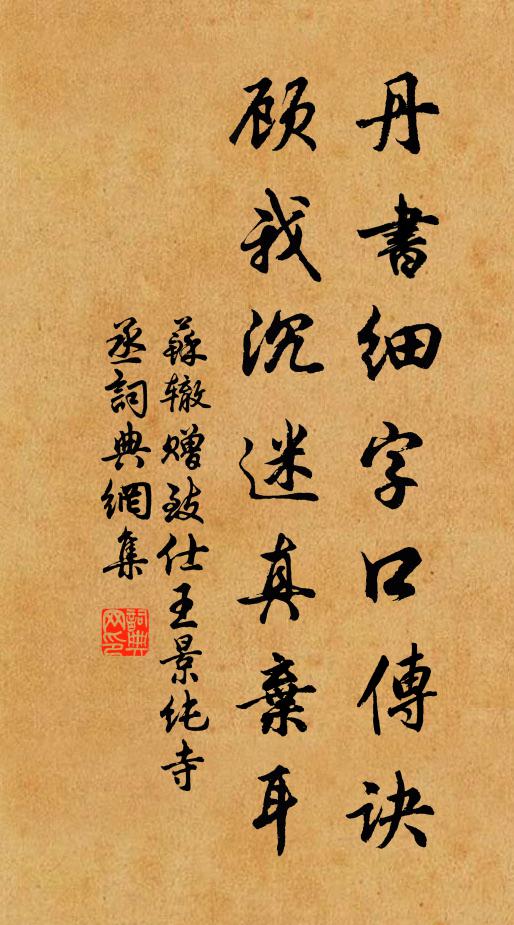 丹書細字口傳訣
顧我沉迷真棄耳
蘇轍贈致仕王景純寺
丞詞典網集
詞典
网印